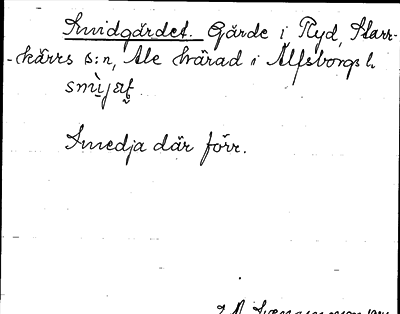 Smidgärdet. Gärde i Ryd, Starr-
-kärrs s:n, Ale härad i Älfsborgs l.
smìjat
Smedja där förr.